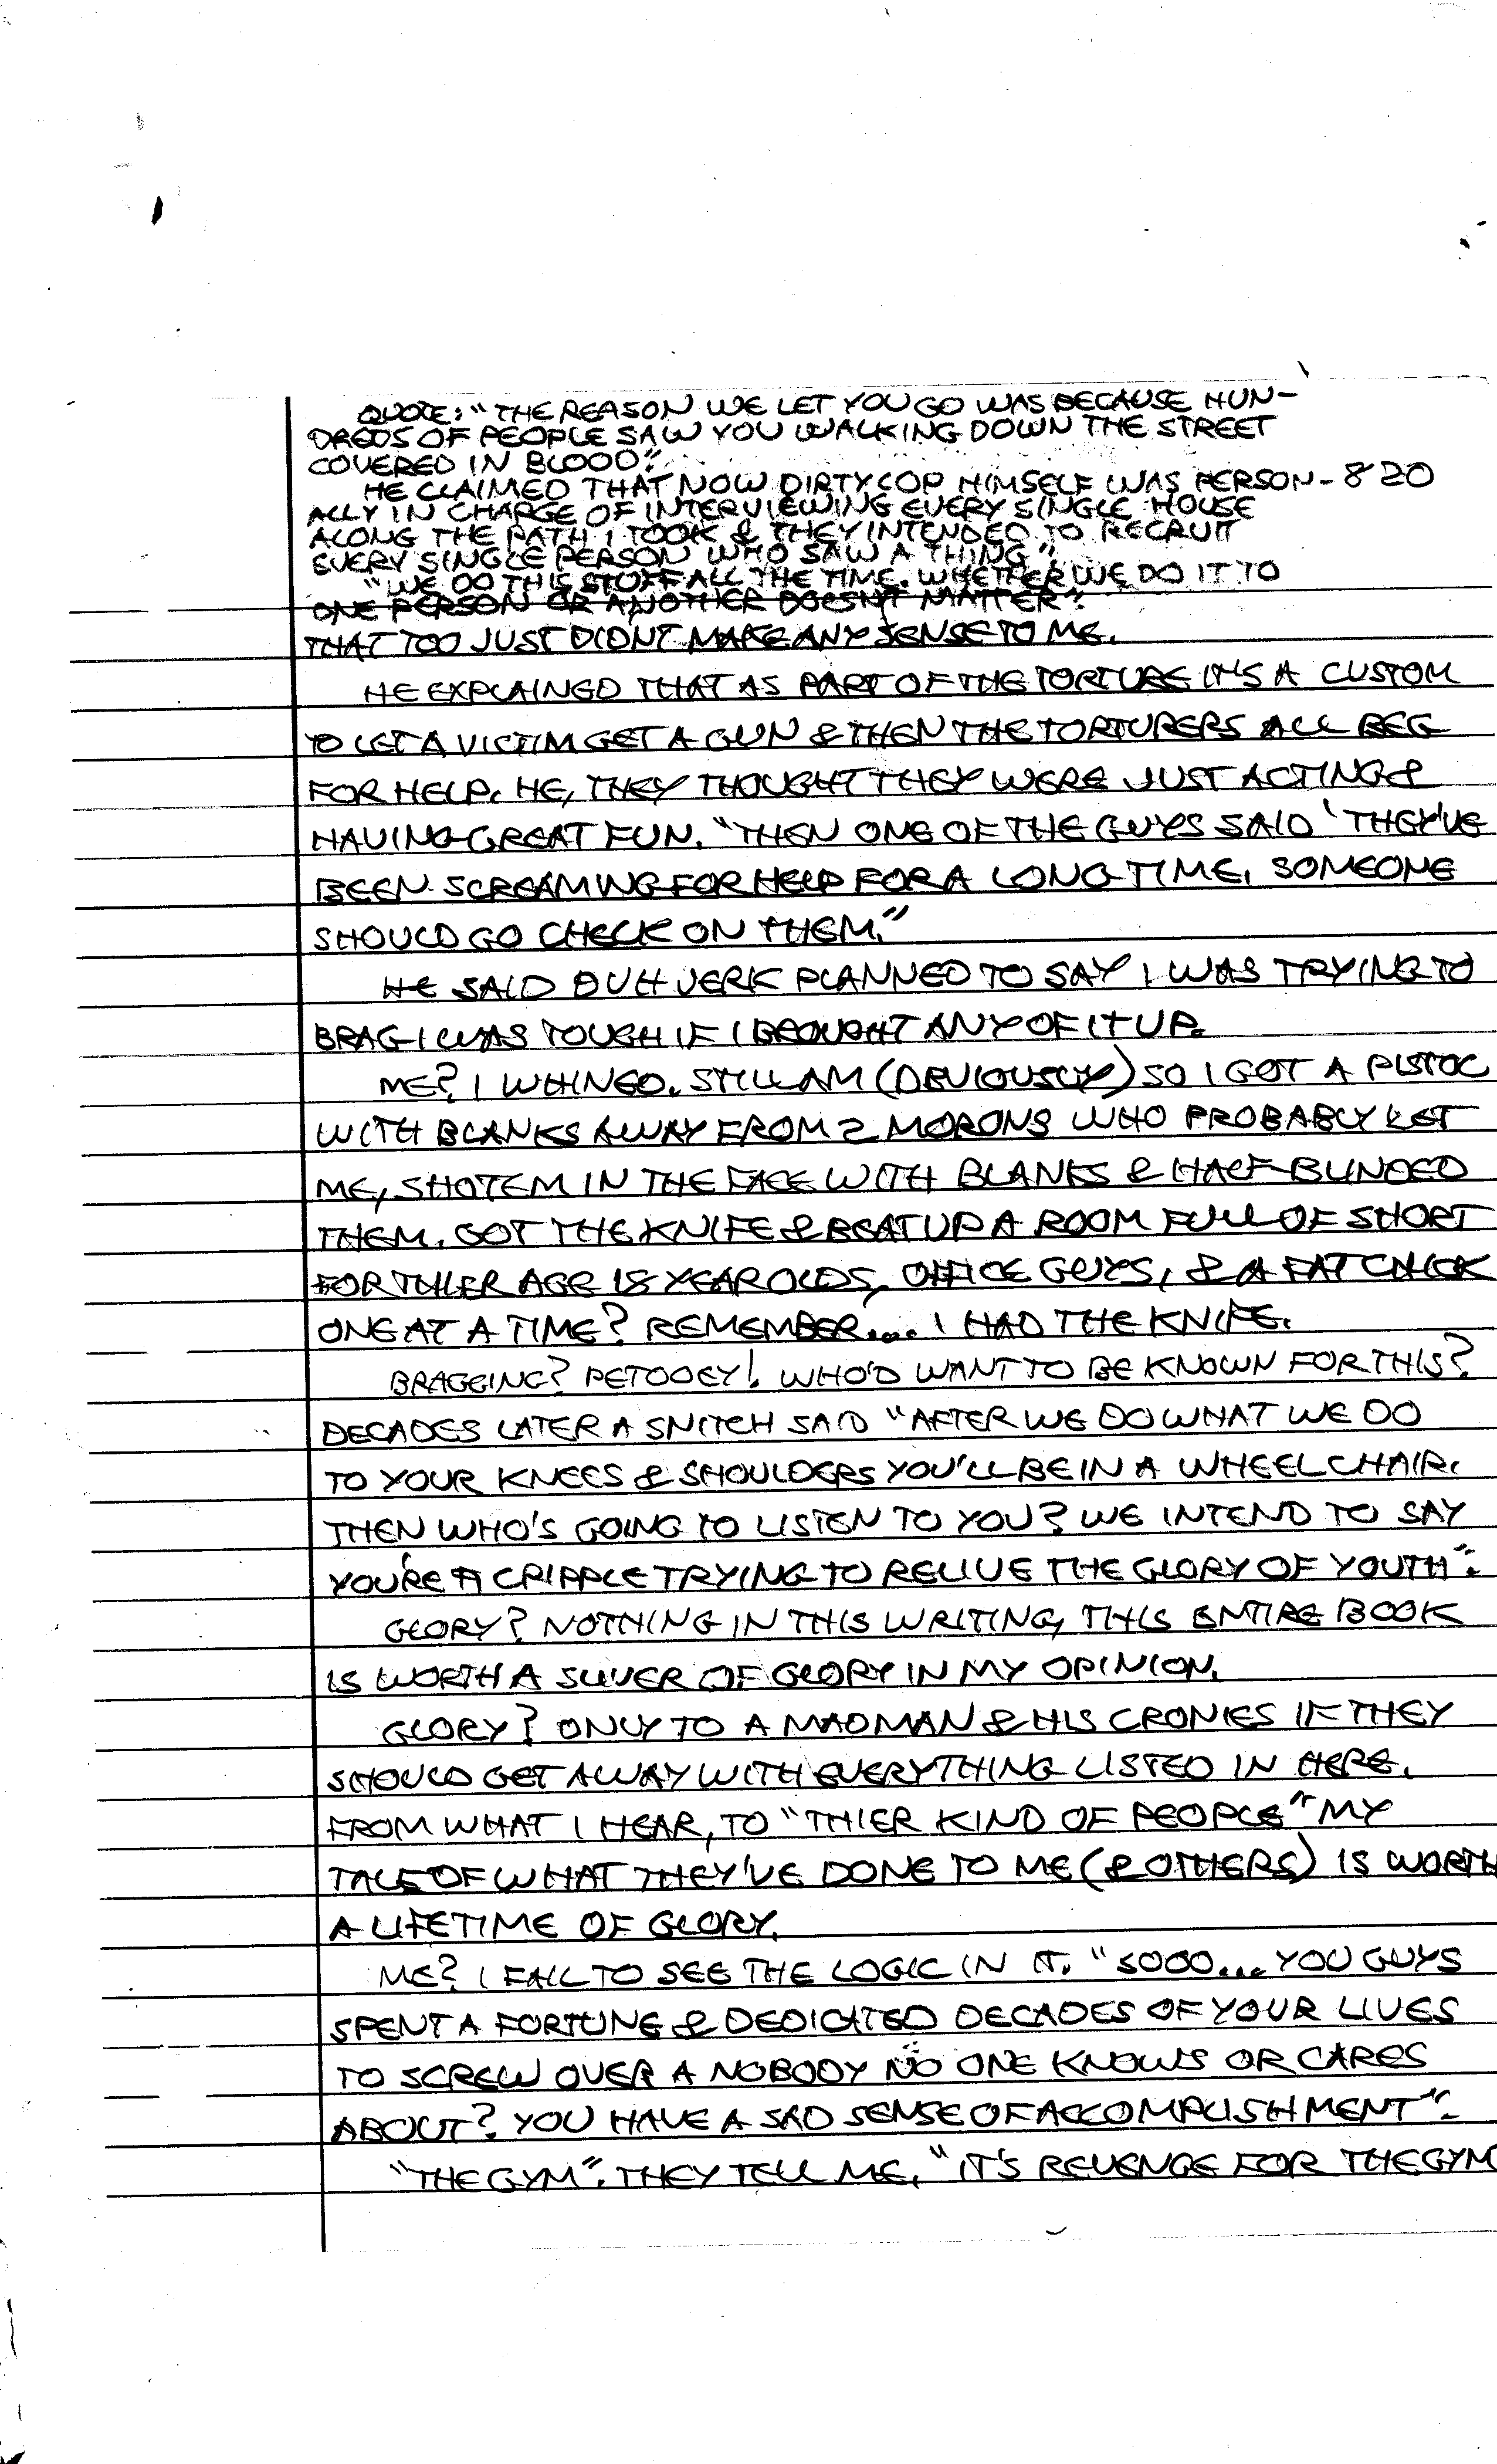 QUOTE: "THE REASON WE LET YOU GO WAS BECAUSE HUN-
DREDS OF PEOPLE SAW YOU WALKING DOWN THE STREET
COVERED IN BLOOD".
HE CLAIMED THAT NOW DIRTYCOP HIMSELF WAS PERSON- 820
ALLY IN CHARGE OF INTERVIEWING EVERY SINGLE HOUSE
ALONG THE PATH I TOOK & THEY INTENDED TO RECRUIT
EVERY SINGLE PERSON WHO SAW A THING"
"WE DO THIS STUFF ALL THE TIME. WHETHER WE DO IT TO
ONE PERSON OR ANOTHER DOESN'T MATTER".
THAT TOO JUST DIDN'T MAKE ANY SENSE TO ME.
HE EXPLAINED THAT AS PART OF THE TORTURE IT'S A CUSTOM
TO LET A VICTIM GET A GUN & THEN THE TORTURERS ALL BEG
FOR HELP. HE, THEY THOUGHT THEY WERE JUST ACTING &
HAVING GREAT FUN. "THEN ONE OF THE GUYS SAID 'THEY'VE
BEEN SCREAMING FOR HELP FOR A LONG TIME, SOMEONE
SHOULD GO CHECK ON THEM."
HE SAID DUH JERK PLANNED TO SAY I WAS TRYING TO
BRAG I WAS TOUGH IF I BROUGHT ANY OF IT UP.
ME? I WHINED. STILL AM (OBVIOUSLY) SO I GOT A PISTOL
WITH BLANKS AWAY FROM 2 MORONS WHO PROBABLY LET
ME, SHOT EM IN THE FACE WITH BLANKS & HALF BLINDED
THEM. GOT THE KNIFE & BEAT UP A ROOM FULL OF SHORT
FOR THIER AGE 18 YEAR OLDS, OFFICE GUYS, & A FAT CHICK
ONE AT A TIME? REMEMBER.... I HAD THE KNIFE.
BRAGGING? PETOOEY! WHO'D WANT TO BE KNOWN FOR THIS?
DECADES LATER A SNITCH SAID "AFTER WE DO WHAT WE DO
TO YOUR KNEES & SHOULDERS YOU'LL BE IN A WHEELCHAIR.
THEN WHO'S GOING TO LISTEN TO YOU? WE INTEND TO SAY
YOU'RE A CRIPPLE TRYING TO RELIVE THE GLORY OF YOUTH".
GLORY? NOTHING IN THIS WRITING, THIS ENTIRE BOOK
IS WORTH A SLIVER OF GLORY IN MY OPINION.
GLORY? ONLY TO A MADMAN & HIS CRONIES IF THEY
SHOULD GET AWAY WITH EVERYTHING LISTED IN HERE.
FROM WHAT I HEAR, TO "THIER KIND OF PEOPLE" MY
TALE OF WHAT THEY'VE DONE TO ME (& OTHERS) IS WORTH
A LIFETIME OF GLORY.
ME? I FAIL TO SEE THE LOGIC IN IT. "SOOO... YOU GUYS
SPENT A FORTUNE & DEDICATED DECADES OF YOUR LIVES
TO SCREW OVER A NOBODY NO ONE KNOWS OR CARES
ABOUT? YOU HAVE A SAD SENSE OF ACCOMPLISHMENT".
"THE GYM". THEY TELL ME, "IT'S REVENGE FOR THE GYM